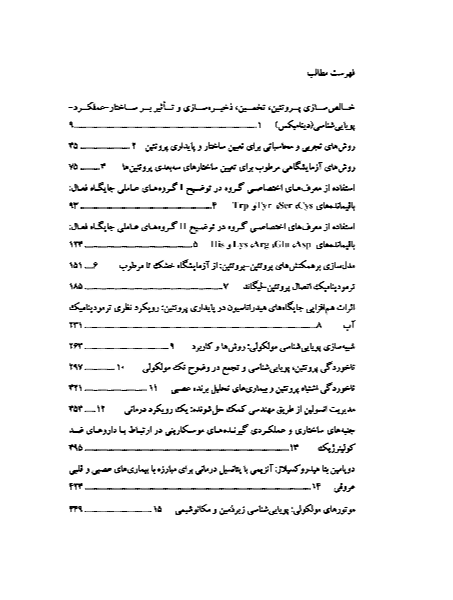 فهرست مطالب
خالص‌سازی پروتئین، تخمین، ذخیره‌سازی و تأثیر بر ساختار-عملکرد-
پویایی‌شناسی(دینامیکس) ۱ ............ ۹
روش‌های تجربی و محاسباتی برای تعیین ساختار و پایداری پروتئین ۲ ............ ۳۵
روش‌های آزمایشگاهی مرطوب برای تعیین ساختارهای سه‌بعدی پروتئین‌ها ۳ ............ ۷۵
استفاده از معرف‌های اختصاصی گروه در توضیح I گروه‌های عاملی جایگاه فعال:
باقیمانده‌های Cys، Ser، Tyr و Trp ۴ ............ ۹۳
استفاده از معرف‌های اختصاصی گروه در توضیح II گروه‌های عاملی جایگاه فعال:
باقیمانده‌های Asp، Glu، Arg، Lys و His ۵ ............ ۱۲۳
مدل‌سازی برهمکنش‌های پروتئین-پروتئین: از آزمایشگاه خشک تا مرطوب ۶ ............ ۱۵۱
ترمودینامیک اتصال پروتئین-لیگاند ۷ ............ ۱۸۵
اثرات هم‌افزایی جایگاه‌های هیدراتاسیون در پایداری پروتئین: رویکرد نظری ترمودینامیک
آب ۸ ............ ۲۳۱
شبیه‌سازی پویایی‌شناسی مولکولی: روش‌ها و کاربرد ۹ ............ ۲۶۳
تاخوردگی پروتئین، پویایی‌شناسی و تجمع در وضوح تک مولکولی ۱۰ ............ ۲۹۷
تاخوردگی اشتباه پروتئین و بیماری‌های تحلیل برنده عصبی ۱۱ ............ ۳۲۱
مدیریت انسولین از طریق مهندسی کمک حل‌شونده: یک رویکرد درمانی ۱۲ ............ ۳۵۳
جنبه‌های ساختاری و عملکردی گیرنده‌های موسکارینی در ارتباط با داروهای ضد
کولینرژیک ۱۳ ............ ۳۹۵
دوپامین بتا هیدروکسیلاز: آنزیمی با پتانسیل درمانی برای مبارزه با بیماری‌های عصبی و قلبی
عروقی ۱۴ ............ ۴۲۳
موتورهای مولکولی: پویایی‌شناسی زیرذهین و مکانوشیمی ۱۵ ............ ۴۴۹